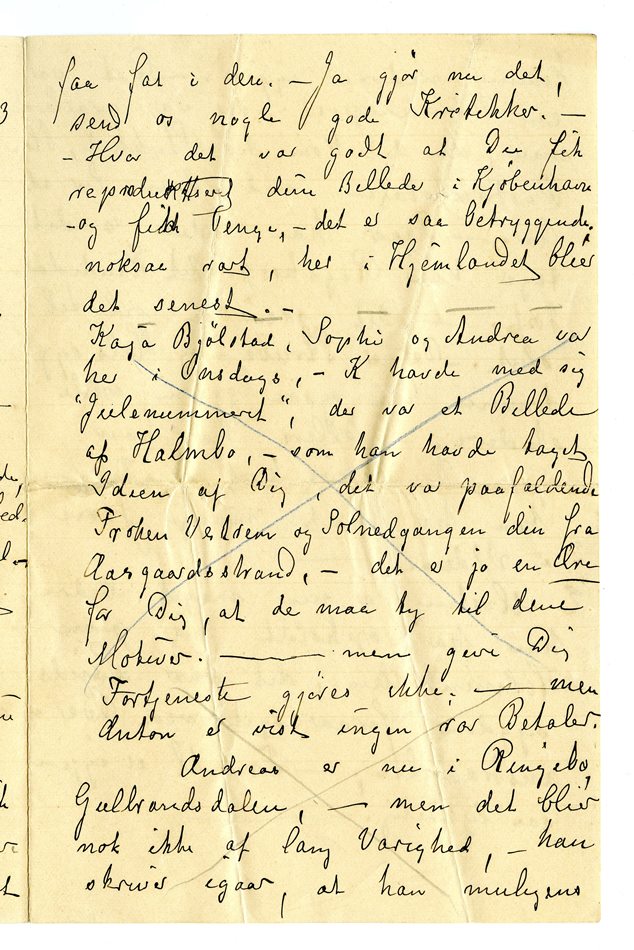 faa fat i den. – Ja gjør nu det,
send os nogle gode Kristikker. –
– Hvor det var godt at Du fik
reproduktseret dine Billeder i Kjøbenhavn
– og fik Penge, – det er saa betryggende.
noksaa rart, her i Hjemlandet blir
det senest. –
Kaja Bjølstad, Sophie og Andrea var
her i Onsdags, – K havde med sig
"Julenummeret", der var et Billede
af Halmbo, – som han havde taget
Ideen af Dig, det var paafaldende
Frøken Vestrem og Solnedgangen din fra
Aasgaardsstrand, – det er jo en Ære
for Dig, at de maa ty til dine
Motiver. — men give Dig
Fortjeneste gjøres ikke. — men
Anton er vist ingen rar Betaler.
Andreas er nu i Ringebo,
Gulbrandsdalen, – men det blir
nok ikke af lang Varighed, – han
skriver igaar, at han muligens
3